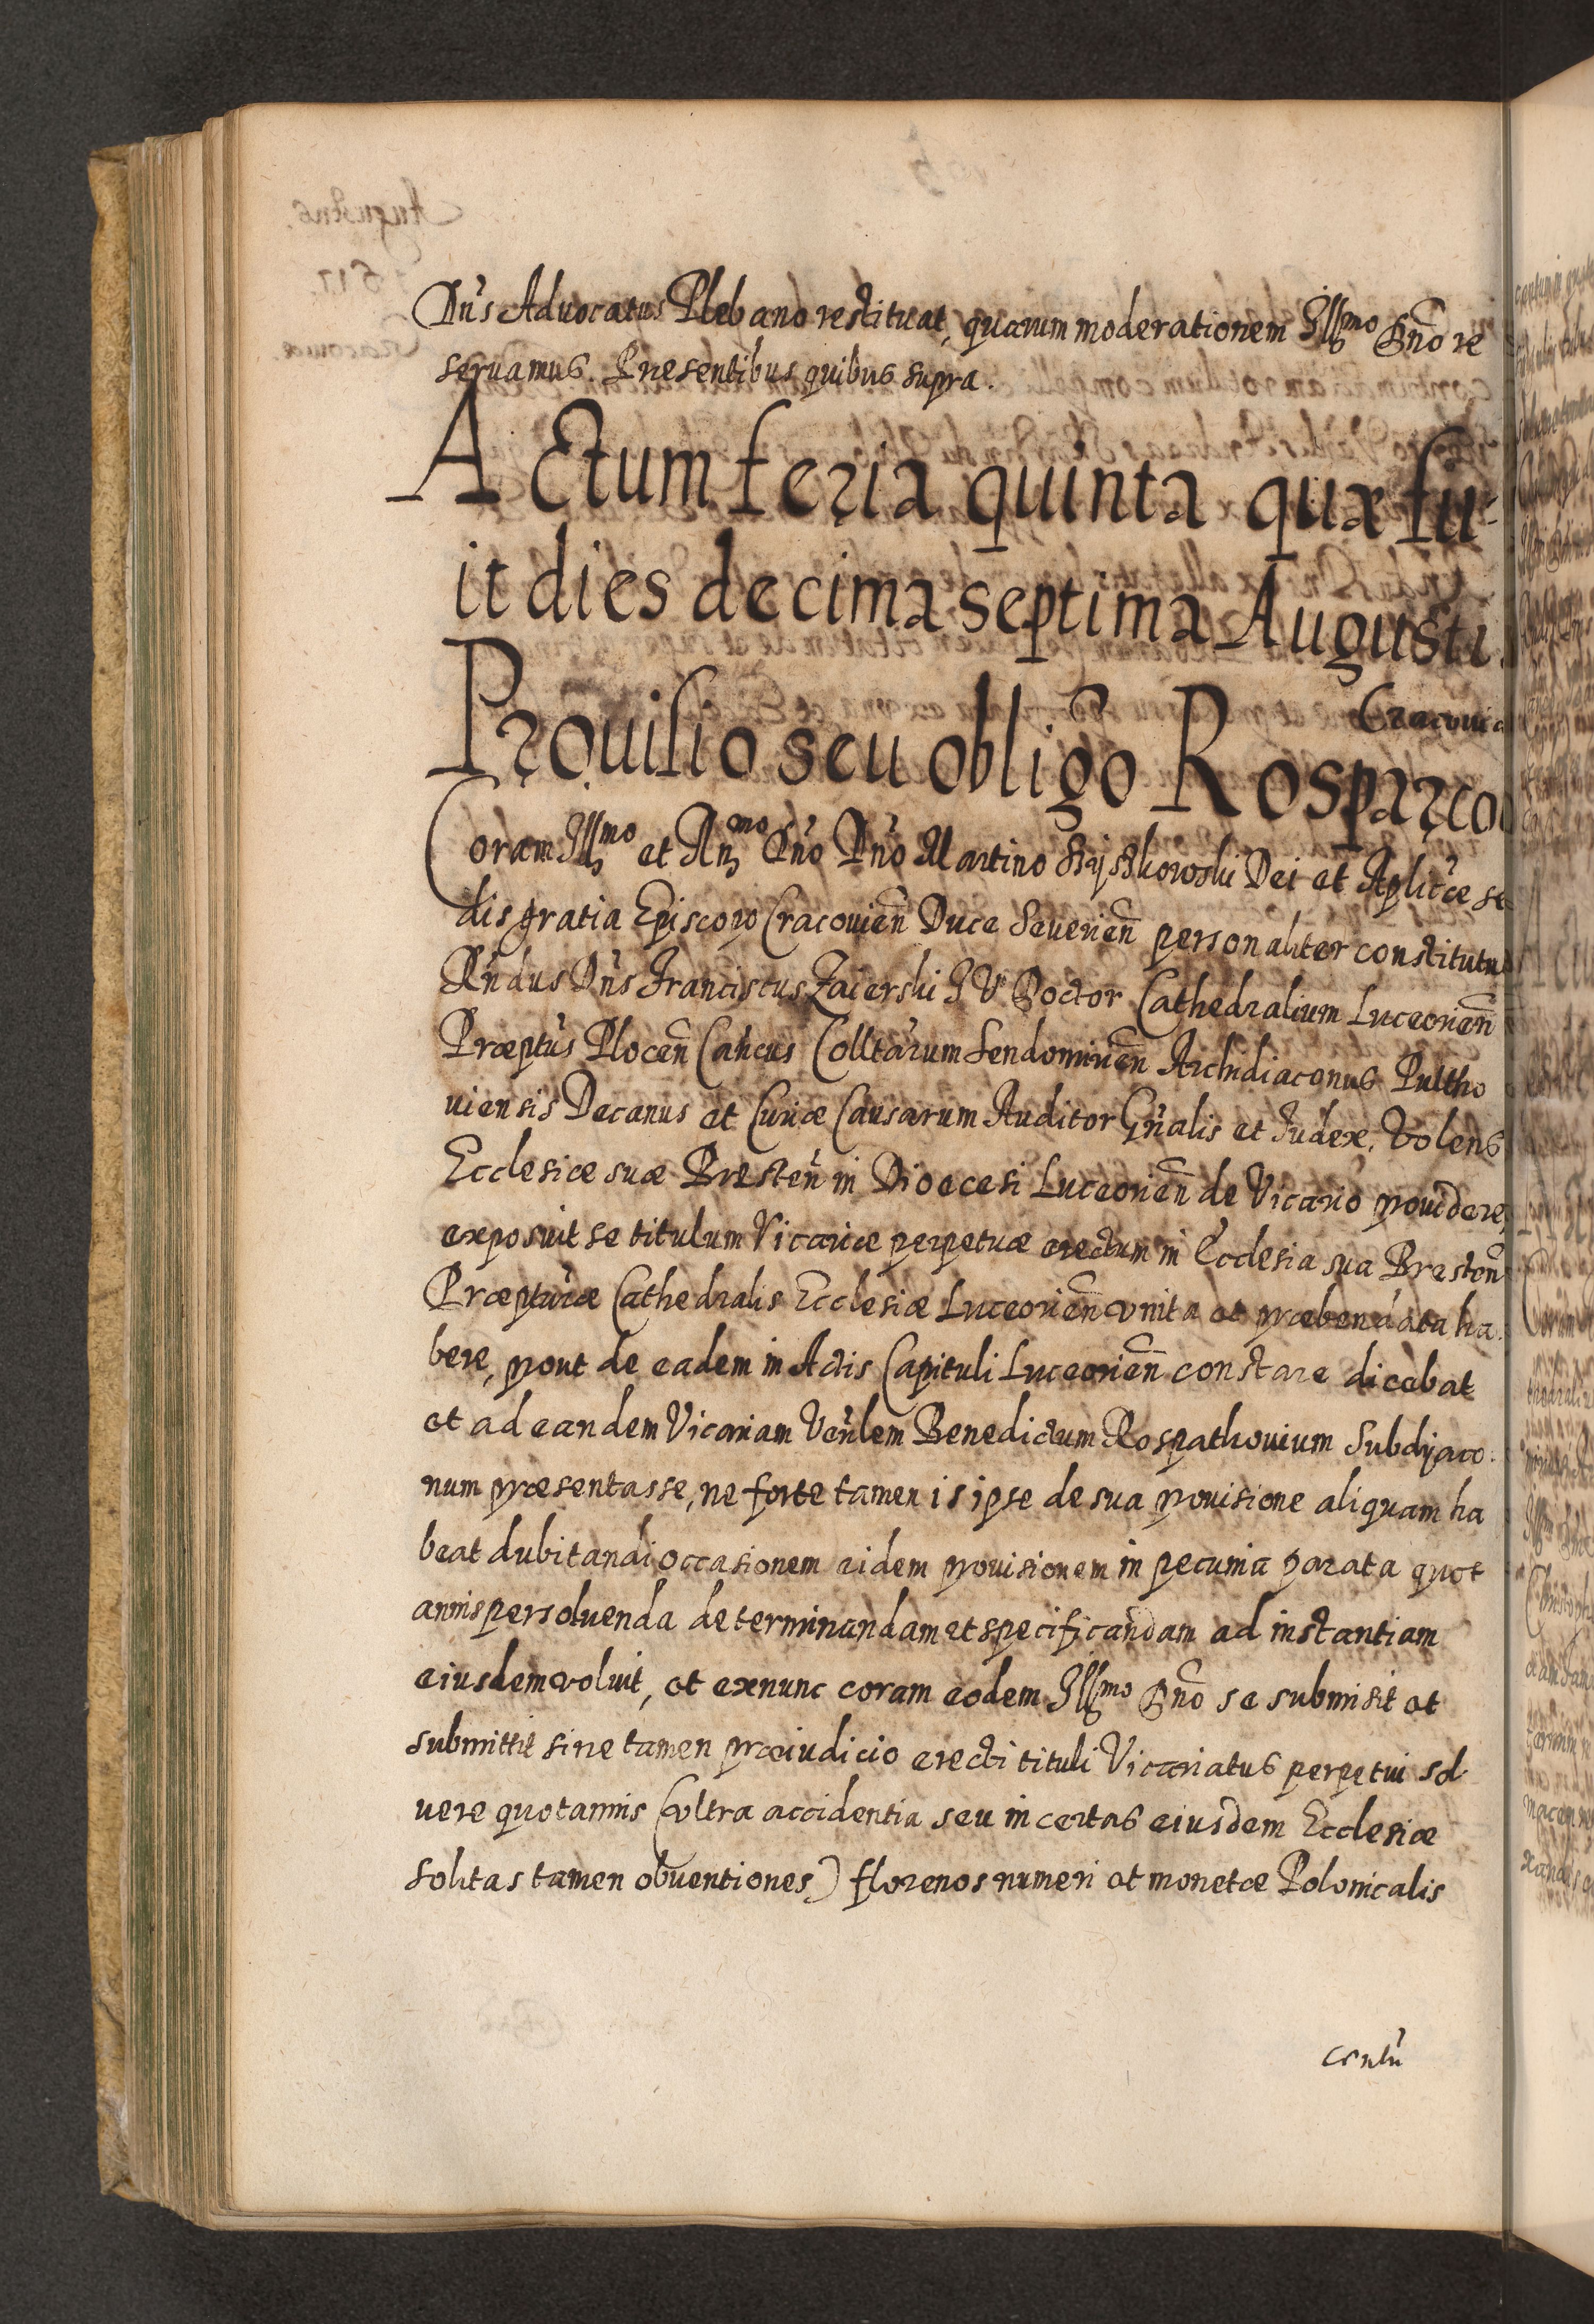 Dn̄s Advocatus Plebano restituat, quarum moderationem Illmo Dn̄o re
servamus. Presentibus quibus supra.
Actum feria quinta quæ fu-
it dies decima septima Augusti
Cracoviæ
Provisio seu obligo Rosparco
Coram Illmo et Rn̄mo Dn̄o Dn̄o Martino Szyszkowski Dei et Aplicæ se
dis gratia Episcopo Cracovien̄ Duce Severien̄ personaliter constitutus
Rn̄dus Dn̄s Franciscus Zaierski I V Doctor Cathedralium Luceorien̄
Præptus Plocen̄ Cancus Colltarum Sendomirien̄ Archidiaconus Pultho
viensis Decanus et Curiæ Causarum Auditor Gn̄alis et Judex. Volens
Ecclesiæ suæ Bresten̄ in Dioecesi Luceorien̄ de Vicario providere,
exposuit se titulum Vicariæ perpetuæ erectum in Ecclesia sua Bresten̄
Præpturæ Cathedralis Ecclesiæ Luceorien̄ unita et præbendata ha.
bere, prout de eadem in Actis Capituli Luceorien̄ constare dicebat
et ad eandem Vicariam Ven̄lem Benedictum Rospathovium Subdyaco.
num præsentasse, ne forte tamen is ipse de sua provisione aliquam ha
beat dubitandi occasionem eidem provisionem in pecunia parata quot
annis persolvenda determinandam et specificandam ad instantiam
eiusdem voluit, et exnunc coram eodem Illmo Dn̄o se submisit et
submittit sine tamen præiudicio erecti tituli Vicariatus perpetui sol
vere quotannis (ultra accidentia seu incertas eiusdem Ecclesiæ
solitas tamen obventiones) florenos numeri et monetæ Polonicalis
centū